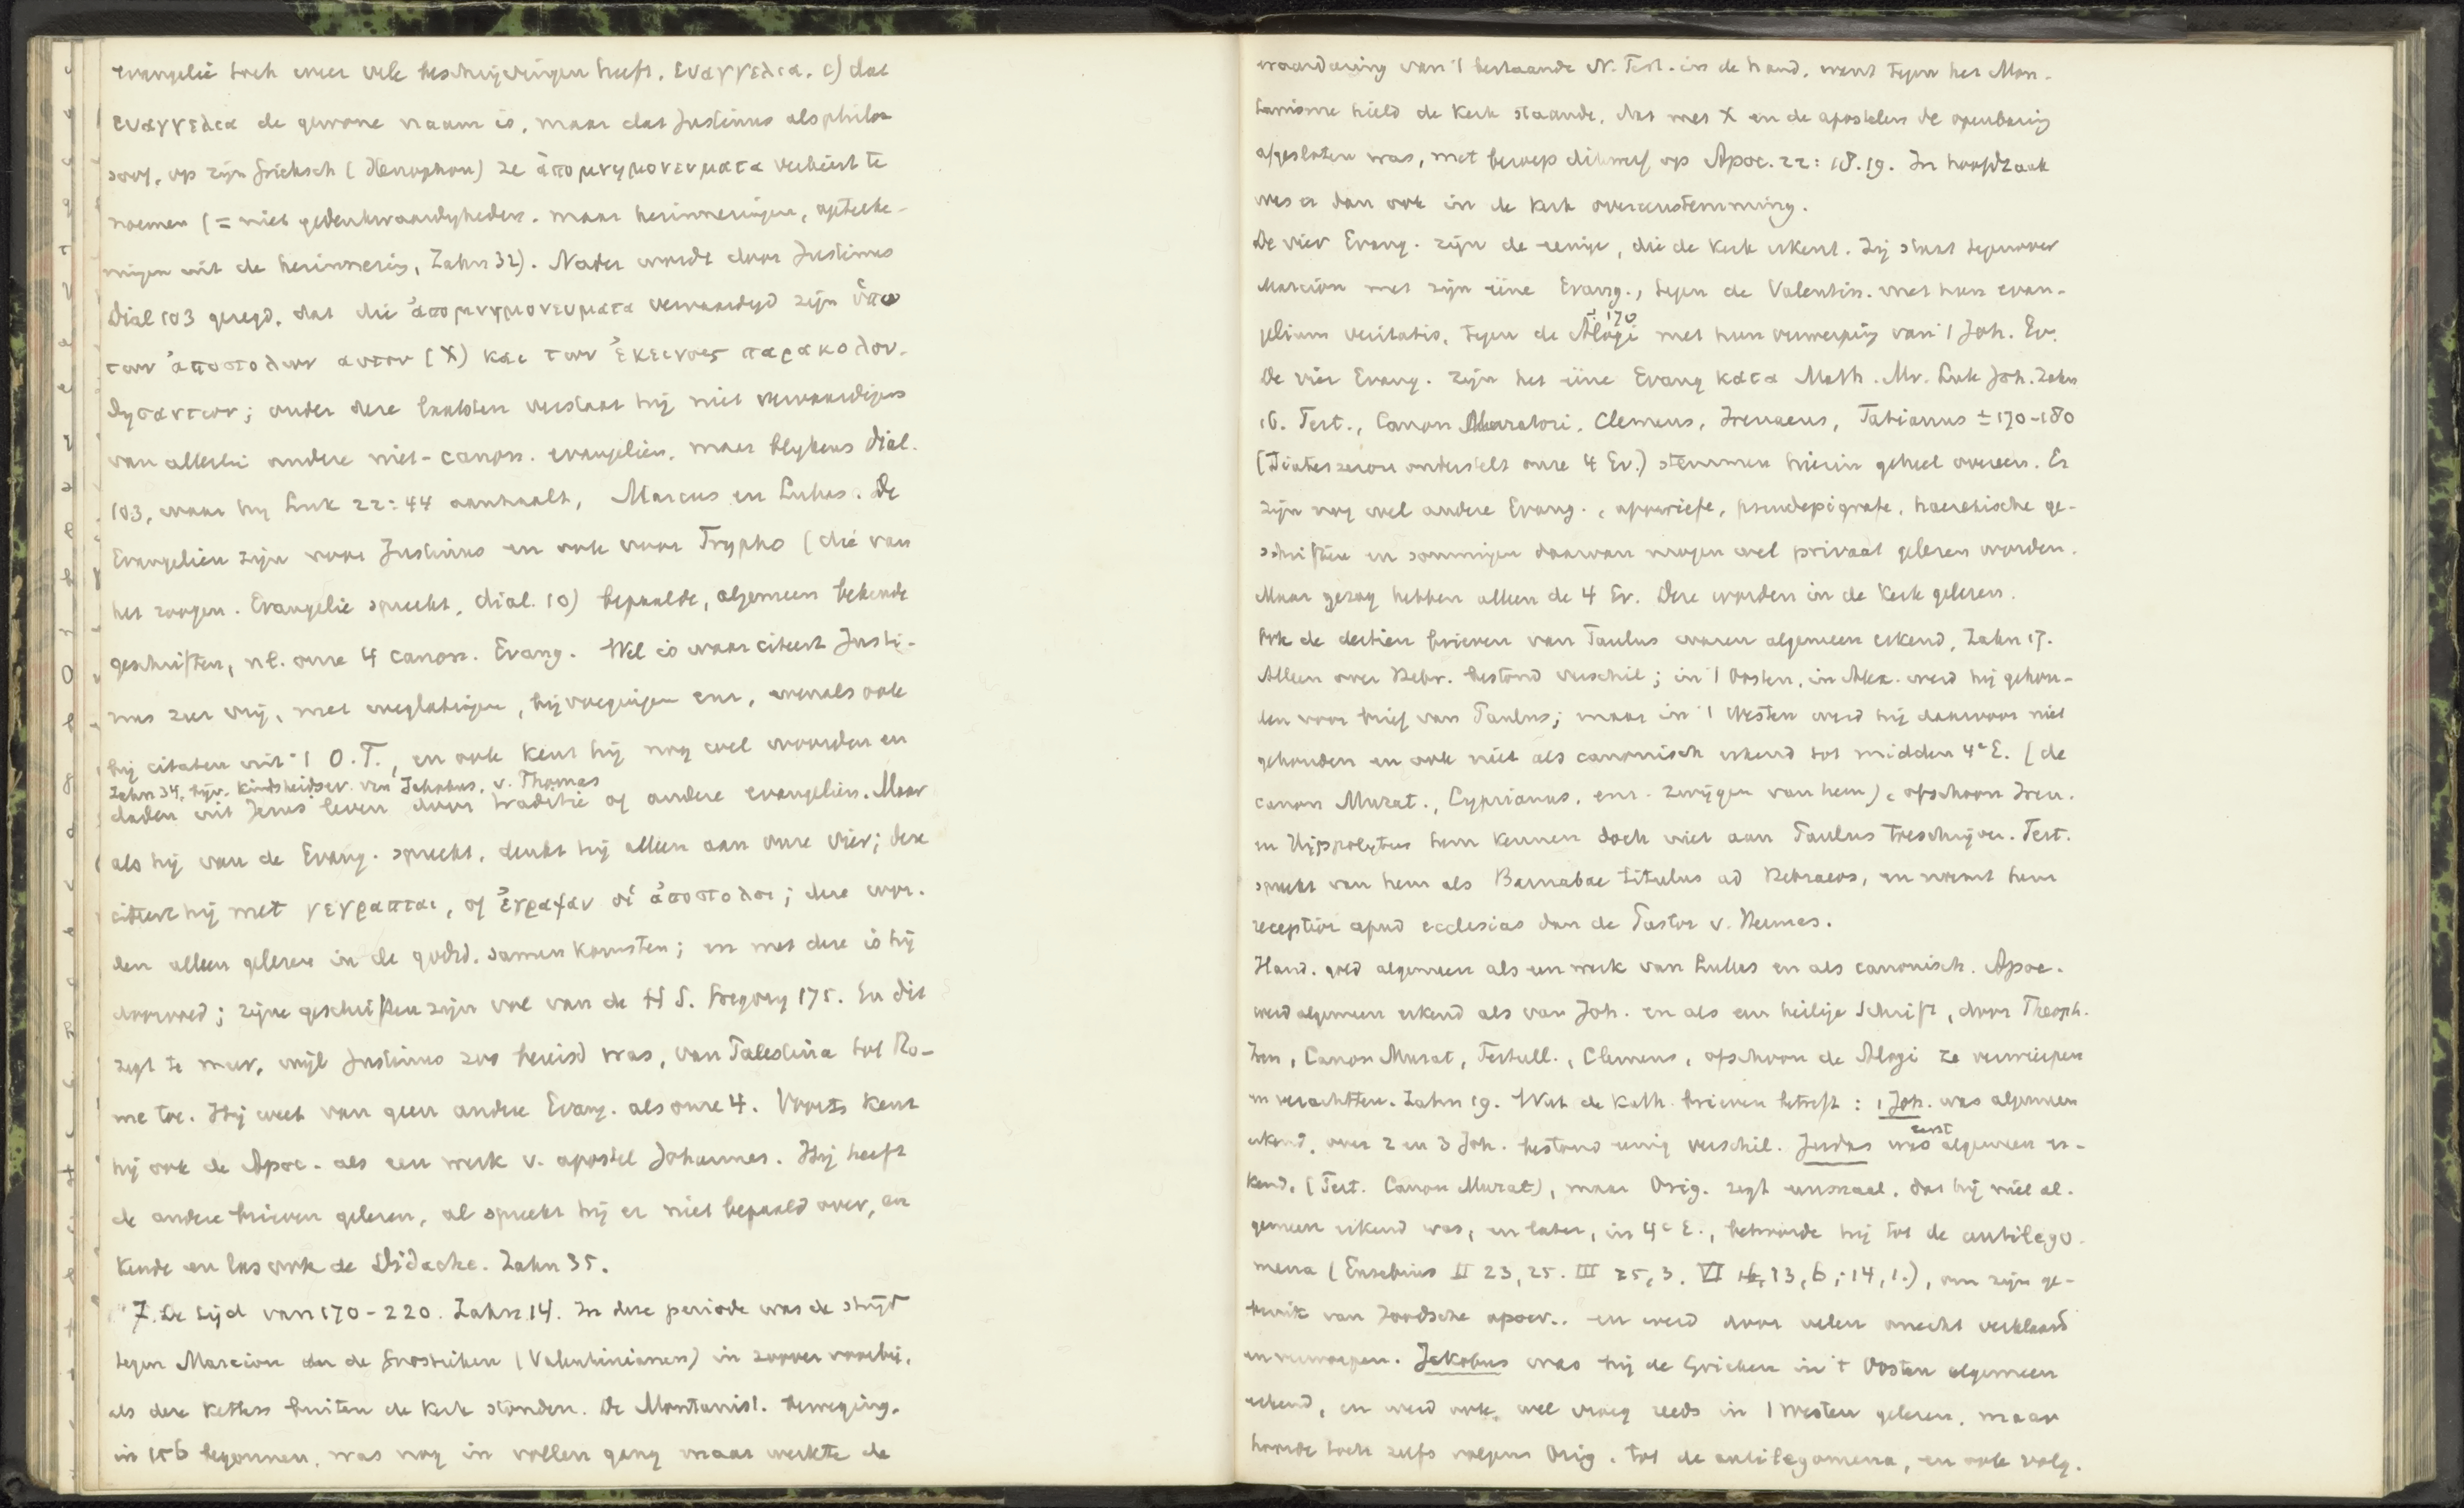 evangelie toch weer vele beschrijvingen heeft. ευαγγελια. c) dat
ευαγγελια de gewone naam is, maar dat Justinus als philo-
soof, op zijn Grieksch (Xenophon) ze ἀπομνημονευματα verkiest te
noemen (= niet gedenkwaardigheden, maar herinneringen, opteeke-
ningen uit de herinnering, Zahn 32). Nader wordt door Justinus
Dial 103 gezegd, dat die ἀπομνημονευματα vervaardigd zijn ὑπο
των ἀποστολων αυτου (X) και των ἐκεινοις παρακολου-
θησαντων; onder deze laatsten verstaat hij niet vervaardigers
van allerlei andere niet-canon. evangeliën, maar blijkens dial.
103, waar hij Luk 22:44 aanhaalt, Marcus en Lukas. De
Evangeliën zijn voor Justinus en ook voor Trypho (die van
het zoogen. Evangelie spreekt, dial. 10) bepaalde, algemeen bekende
geschriften, nl. onze 4 canon. Evang. Wel is waar citeert Justi-
nus zeer vrij, met weglatingen, bijvoegingen enz, evenals ook
bij citaten uit 't O.T., en ook kent hij nog wel woorden en
Zahn 34, bijv. Kindsheidsev. van Jakobus, v. Thomas
daden uit Jezus' leven door traditie of andere evangeliën. Maar
als hij van de Evang. spreekt, denkt hij alleen aan onze vier; deze
citeert hij met γεγραπται, of ἐγραψαν οἱ ἀποστολοι; deze wor-
den alleen gelezen in de godsd. samenkomsten; en met deze is hij
doorvoed; zijne geschriften zijn vol van de H S. Gregory 175. En dit
zegt te meer, wijl Justinus zoo bereisd was, van Palestina tot Ro-
me toe. Hij weet van geen andere Evang. als onze 4. Voorts kent
hij ook de Apoc. als een werk v. apostel Johannes. Hij heeft
de andere brieven gelezen, al spreekt hij er niet bepaald over, en
kende en las ook de Didache. Zahn 35.
7. De tijd van 170-220. Zahn 14. In deze periode was de strijd
tegen Marcion en de Gnostieken (Valentinianen) in zoover voorbij,
als deze ketters buiten de Kerk stonden. De Montanist. beweging,
in 156 begonnen, was nog in vollen gang maar werkte de
waardeering van 't bestaande N. Test. in de hand, want tegen het Mon-
tanisme hield de Kerk staande, dat met X en de apostelen de openbaring
afgesloten was, met beroep dikwijls op Apoc. 22:18.19. In hoofdzaak
was er dan ook in de Kerk overeenstemming.
De vier Evang. zijn de eenige, die de Kerk erkent. Zij staat tegenover
Marcion met zijn ééne Evang., tegen de Valentin. met hun evan-
± 170
gelium veritatis, tegen de Alogi met hun verwerping van 't Joh. Ev.
De vier Evang. zijn het ééne Evang κατα Matth. Mr. Luk Joh. Zahn
16. Tert., Canon Muratori, Clemens, Irenaeus, Tatianus ± 170-180
(Diatessaron onderstelt onze 4 Ev.) stemmen hierin geheel overeen. Er
zijn nog wel andere Evang., apocriefe, pseudepigrafe, haeretische ge-
schriften en sommigen daarvan mogen wel privaat gelezen worden.
Maar gezag hebben alleen de 4 Ev. Deze worden in de Kerk gelezen.
Ook de dertien brieven van Paulus waren algemeen erkend, Zahn 17.
Alleen over Hebr. bestond verschil; in 't Oosten, in Alex. werd hij gehou-
den voor brief van Paulus; maar in 't Westen werd hij daarvoor niet
gehouden en ook niet als canonisch erkend tot midden 4e E. (de
canon Murat., Cyprianus, enz. zwijgen van hem), ofschoon Iren.
en Hippolytus hem kennen doch niet aan Paulus toeschrijven. Tert.
spreekt van hem als Barnabae titulus ad Hebraeos, en noemt hem
receptior apud ecclesias dan de Pastor v. Hermas.
Hand. gold algemeen als een werk van Lukas en als canonisch. Apoc.
werd algemeen erkend als van Joh. en als een heilige Schrift, door Theoph.
Iren, Canon Murat, Tertull., Clemens, ofschoon de Alogi ze verwierpen
en verachtten. Zahn 19. Wat de Kath. brieven betreft: 1 Joh. was algemeen
erkend, over 2 en 3 Joh. bestond eenig verschil. Judas was eerst algemeen er-
kend, (Tert. Canon Murat), maar Orig. zegt eenmaal, dat hij niet al-
gemeen erkend was, en later, in 4e E., behoorde hij tot de antilego-
mena (Eusebius II 23, 25. III 25, 3. VI 13, 6; 14, 1.), om zijn ge-
bruik van Joodsche apocr.. en werd door velen onecht verklaard
en verworpen. Jakobus was bij de Grieken in 't Oosten algemeen
erkend, en werd ook wel vroeg reeds in 't Westen gelezen, maar
hoorde toch zelfs volgens Orig. tot de antilegomena, en ook volg.